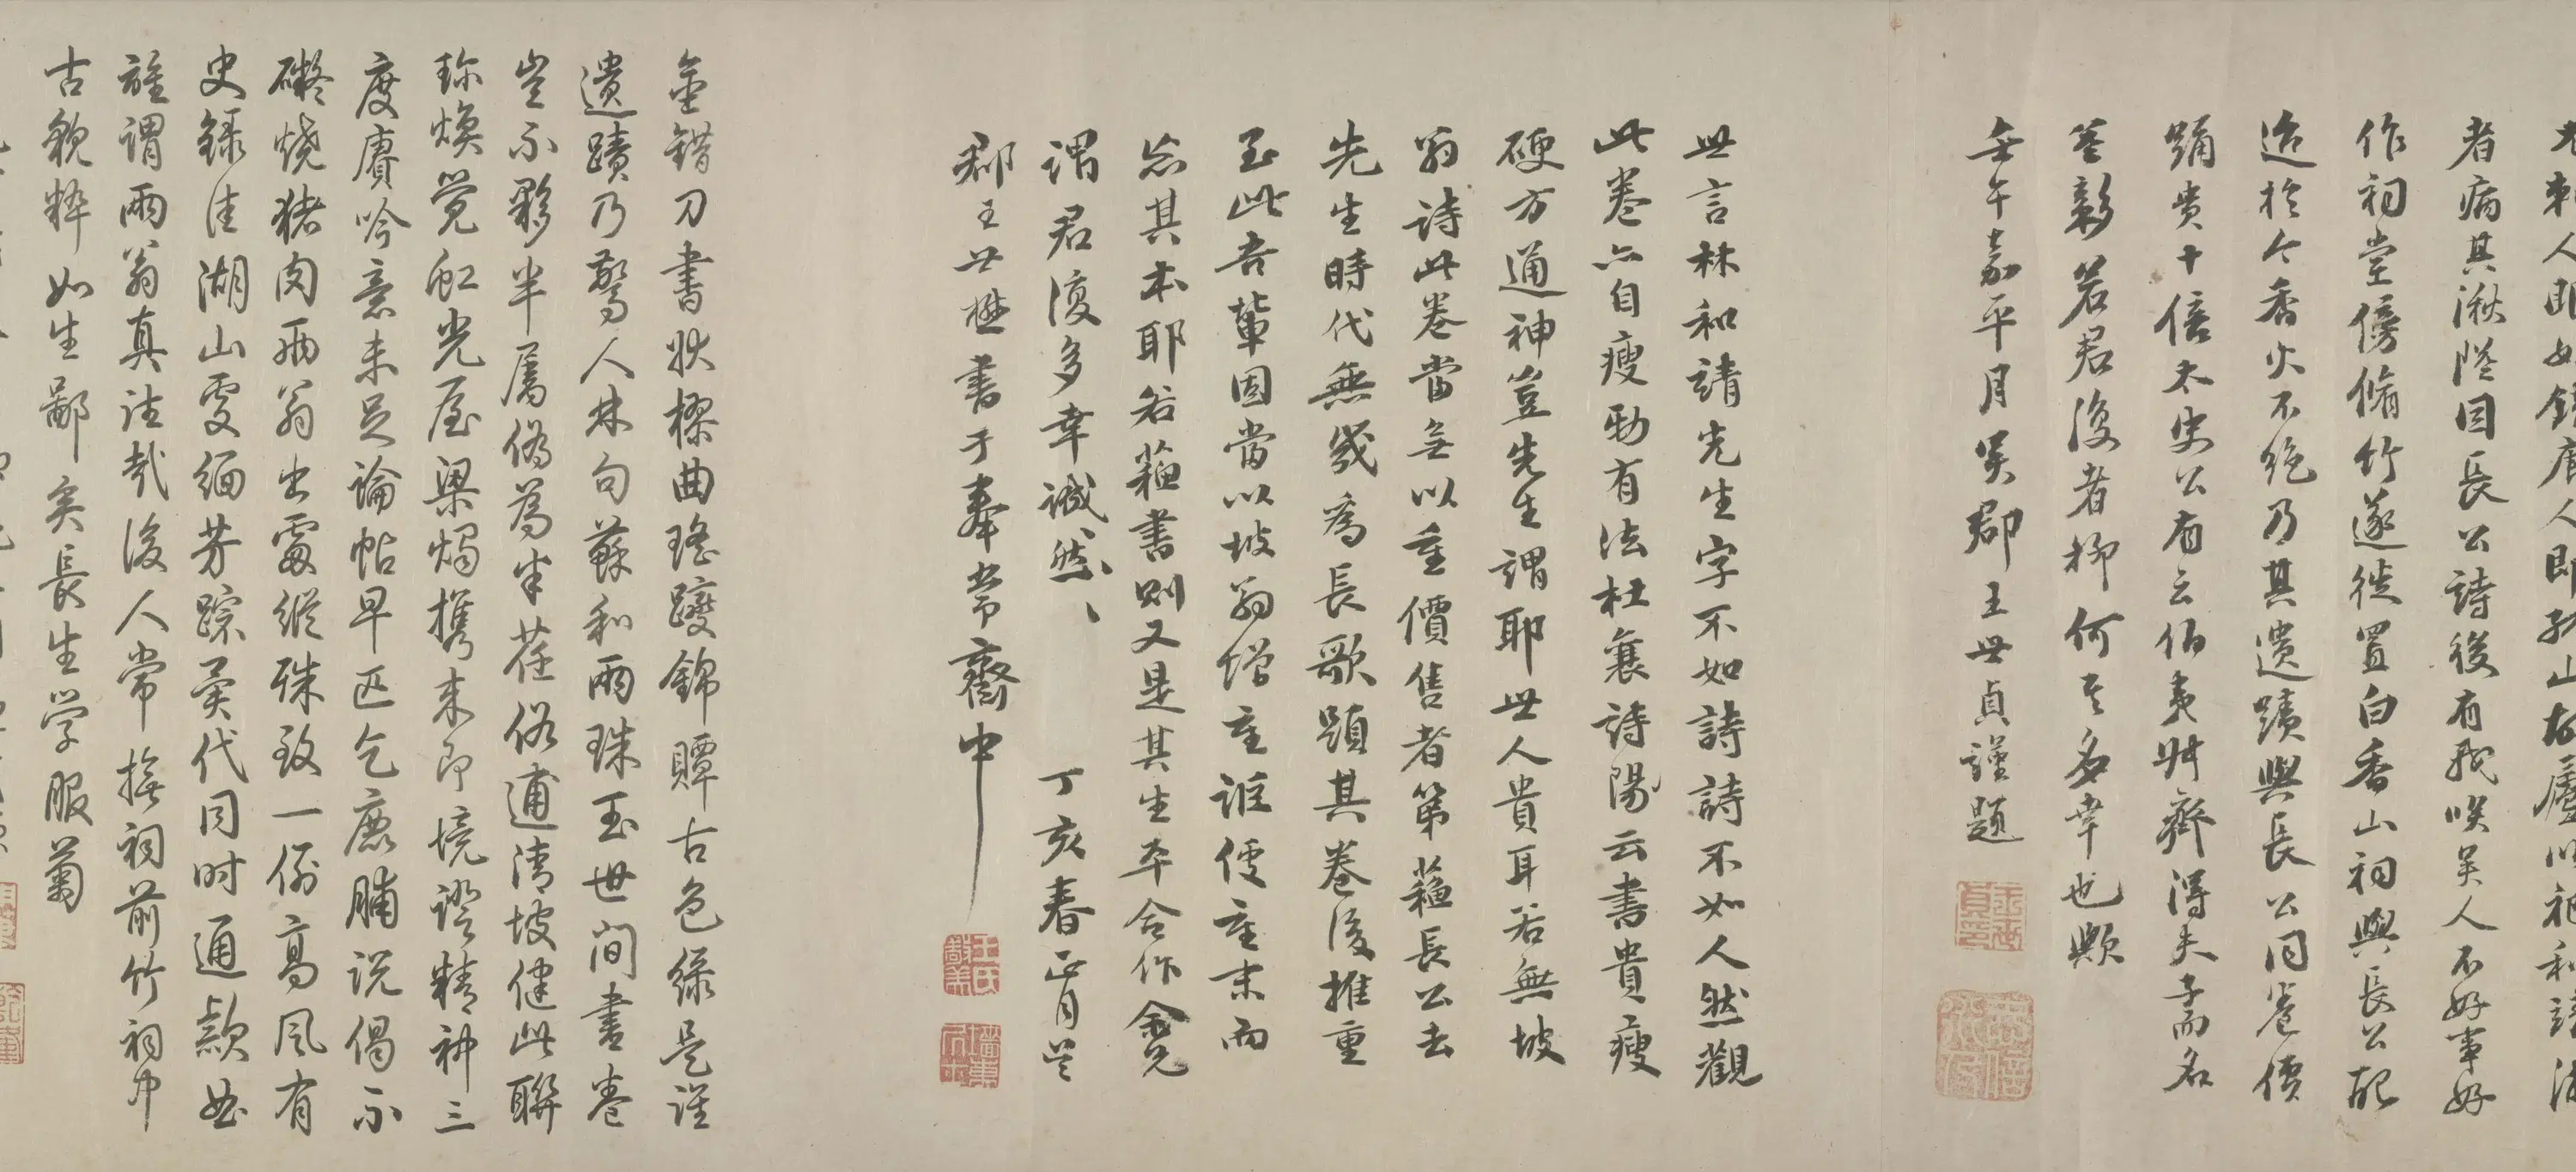 者病其湫隘因長公詩後有我笑吳人不好事好
作祠堂傍脩竹遂徙置白香山祠與長公配
迨於今香火不絕乃其遺蹟與長公同卷價
踊貴十倍太史公有云伯夷叔齊得夫子而名
益彰若君復者抑何其多幸也歟
壬午嘉平月吳郡王世貞謹題
世言林和靖先生字不如詩詩不如人然觀
此卷亦自瘦勁有法杜襄陽云書貴瘦
硬方通神豈先生謂耶世人貴耳若無坡
翁詩此卷當無以重價售者第蘇長公去
先生時代無幾為長歌題其卷後推重
至此吾輩固當以坡翁增重誰使重末而
忘其本耶若蘇書則又是其生平合作覽
謂君復多幸誠然誠然丁亥春正月吳
郡王世懋書于奉常齋中
金錯刀書狀樛曲瑤躞錦贉古色綠是誰
遺蹟乃驚人林句蘇和兩珠玉世間書卷
豈不夥半屬偽為半荏俗逋清坡健此聯
珎煥覺虹光屋梁燭攜來即境證精神三
度賡吟意未足論帖早匹乞鹿脯說偈不
礙燒猪肉兩翁出處縱殊致一例高風有
史錄佳湖山處緬芳踪異代同時通款曲
誰謂兩翁真往哉後人常換祠前竹祠中
古貌粹如生鄙矣長生學服菊